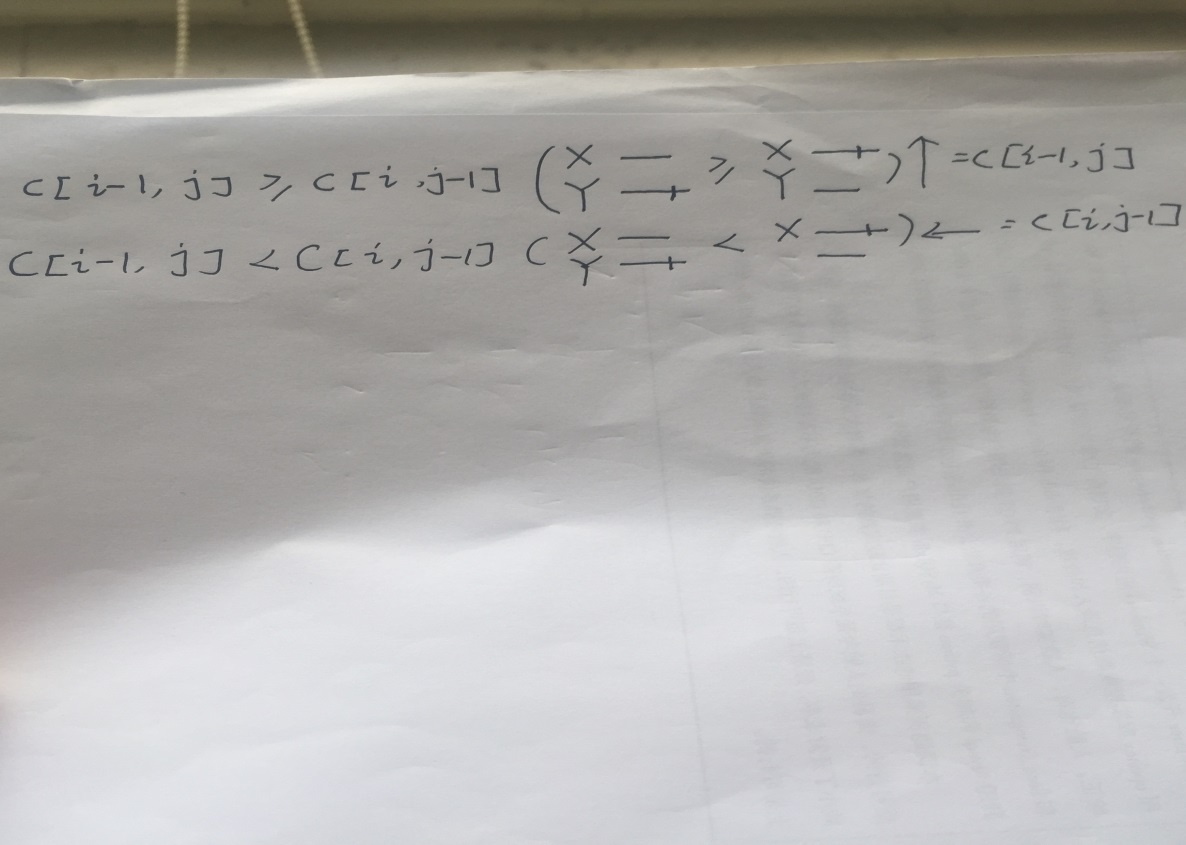 C[i-1, j] ⩾ C[i, j-1] (X — ⩾ X —+ )↑ = C[i-1, j]
Y —+ Y —
C[i-1, j] < C[i, j-1] (X — < X —+ )← = C[i, j-1]
Y —+ —